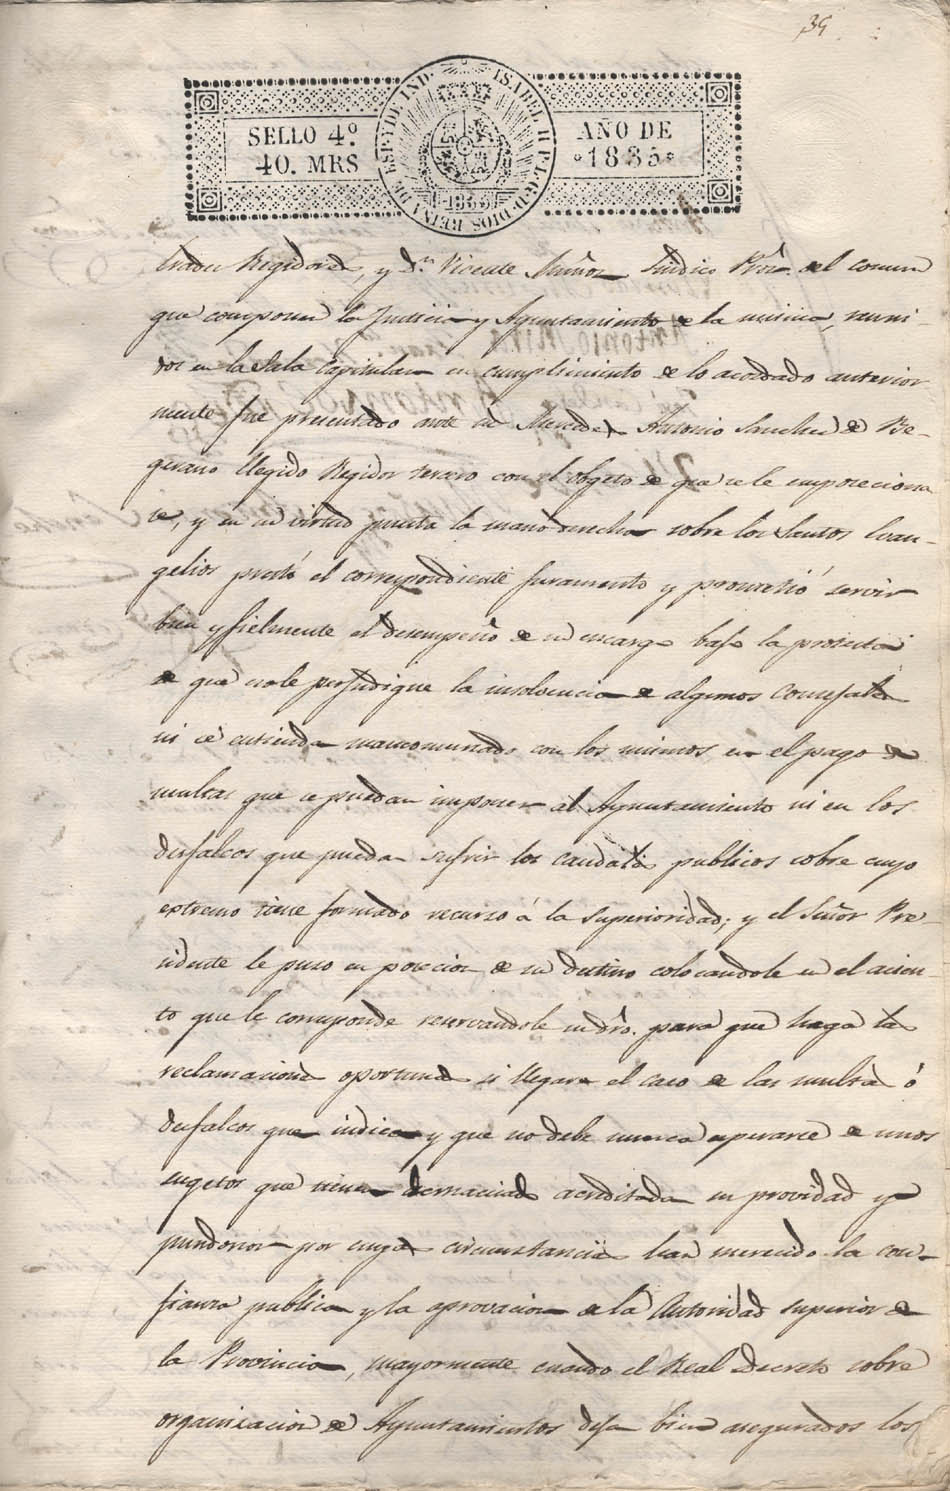 39
SELLO 4º
40. MRS
ISABEL II P. L. G. D. DIOS REINA DE ESP. Y DE IND.
1835
AÑO DE
1835
Regidores, y Dn. Vicente Muñoz Sindico Pror. del comun
que componen la Justicia y Ayuntamiento de la misma, reuni-
dos en la Sala Capitular en cumplimiento de lo acordado anterior
mente fue presentado ante su Merced Antonio Sanchez de Be-
gerano elegido Regidor tercero con el objeto de que se le emposeciona
se, y en su virtud puesta la mano derecha sobre los Santos Evan-
gelios prestó el correspondiente juramento y prometió servir
bien y fielmente el desempeño de su encargo bajo la protesta
de que no le perjudique la insolvencia de algunos Concejales
ni se entienda mancomunado con los mismos en el pago de
multas que se puedan imponer al Ayuntamiento ni en los
desfalcos que puedan sufrir los caudales publicos sobre cuyo
extremo tiene formado recurso á la Superioridad; y el Señor Pre-
sidente le puso en posecion de su destino colocandole en el acien-
to que le corresponde reservandole su dro. para que haga las
reclamaciones oportunas si llegare el caso de las multas ó
desfalcos que indica y que no debe nunca esperarse de unos
sugetos que tienen demaciado acreditada su providad y
pundonor por cuyas circunstancias han merecido la con-
fianza publica y la aprovacion de la Autoridad superior de
la Provincia, mayormente cuando el Real Decreto sobre
organizacion de Ayuntamientos deja bien asegurados los